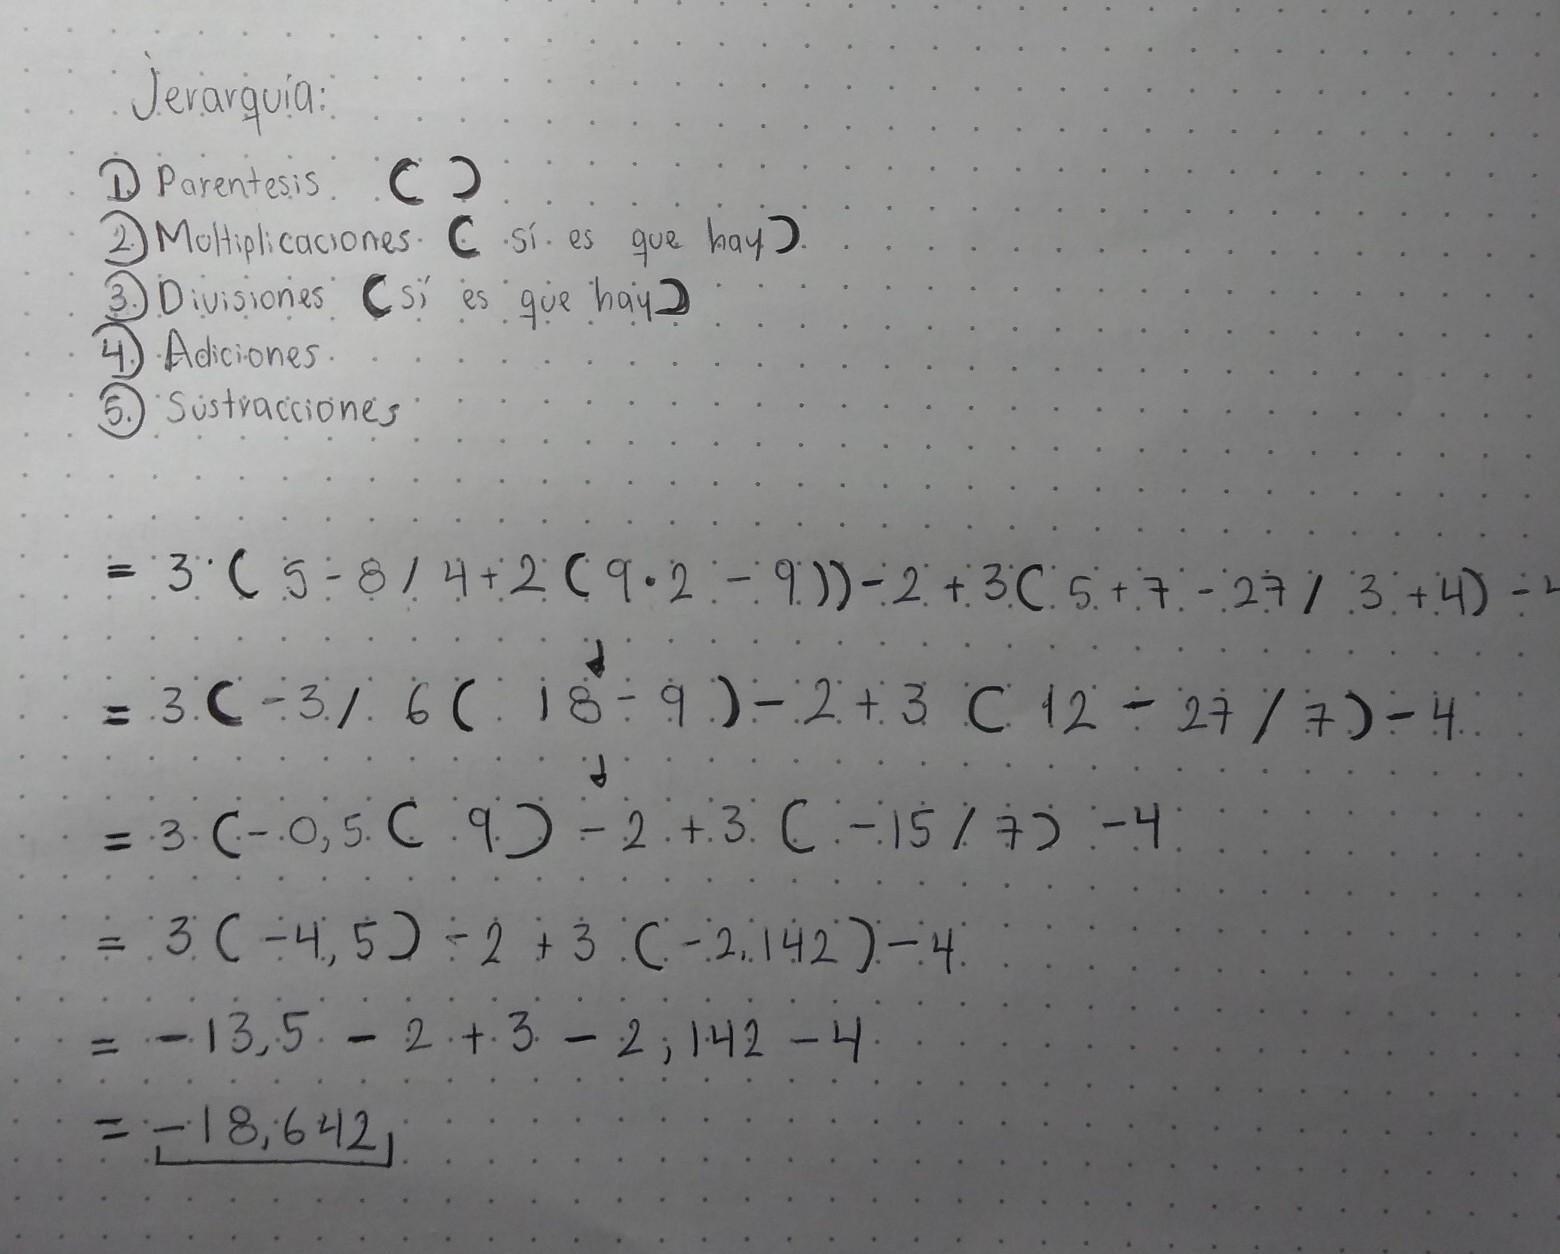 Jerarquía:
1. Parentesis ( )
2. Multiplicaciones ( sí es que hay )
3. Divisiones ( sí es que hay )
4. Adiciones
5. Sustracciones
= 3·( 5 - 8 / 4 + 2 ( 9·2 - 9 )) - 2 + 3( 5 + 7 - 27 / 3 + 4) -
= 3 ( - 3 / 6 ( 18 - 9 ) - 2 + 3 ( 12 - 27 / 7 ) - 4
= 3 ( - 0,5 ( 9 ) - 2 + 3 ( - 15 / 7 ) - 4
= 3 ( - 4,5 ) - 2 + 3 ( - 2,142 ) - 4
= - 13,5 - 2 + 3 - 2,142 - 4
= - 18,642